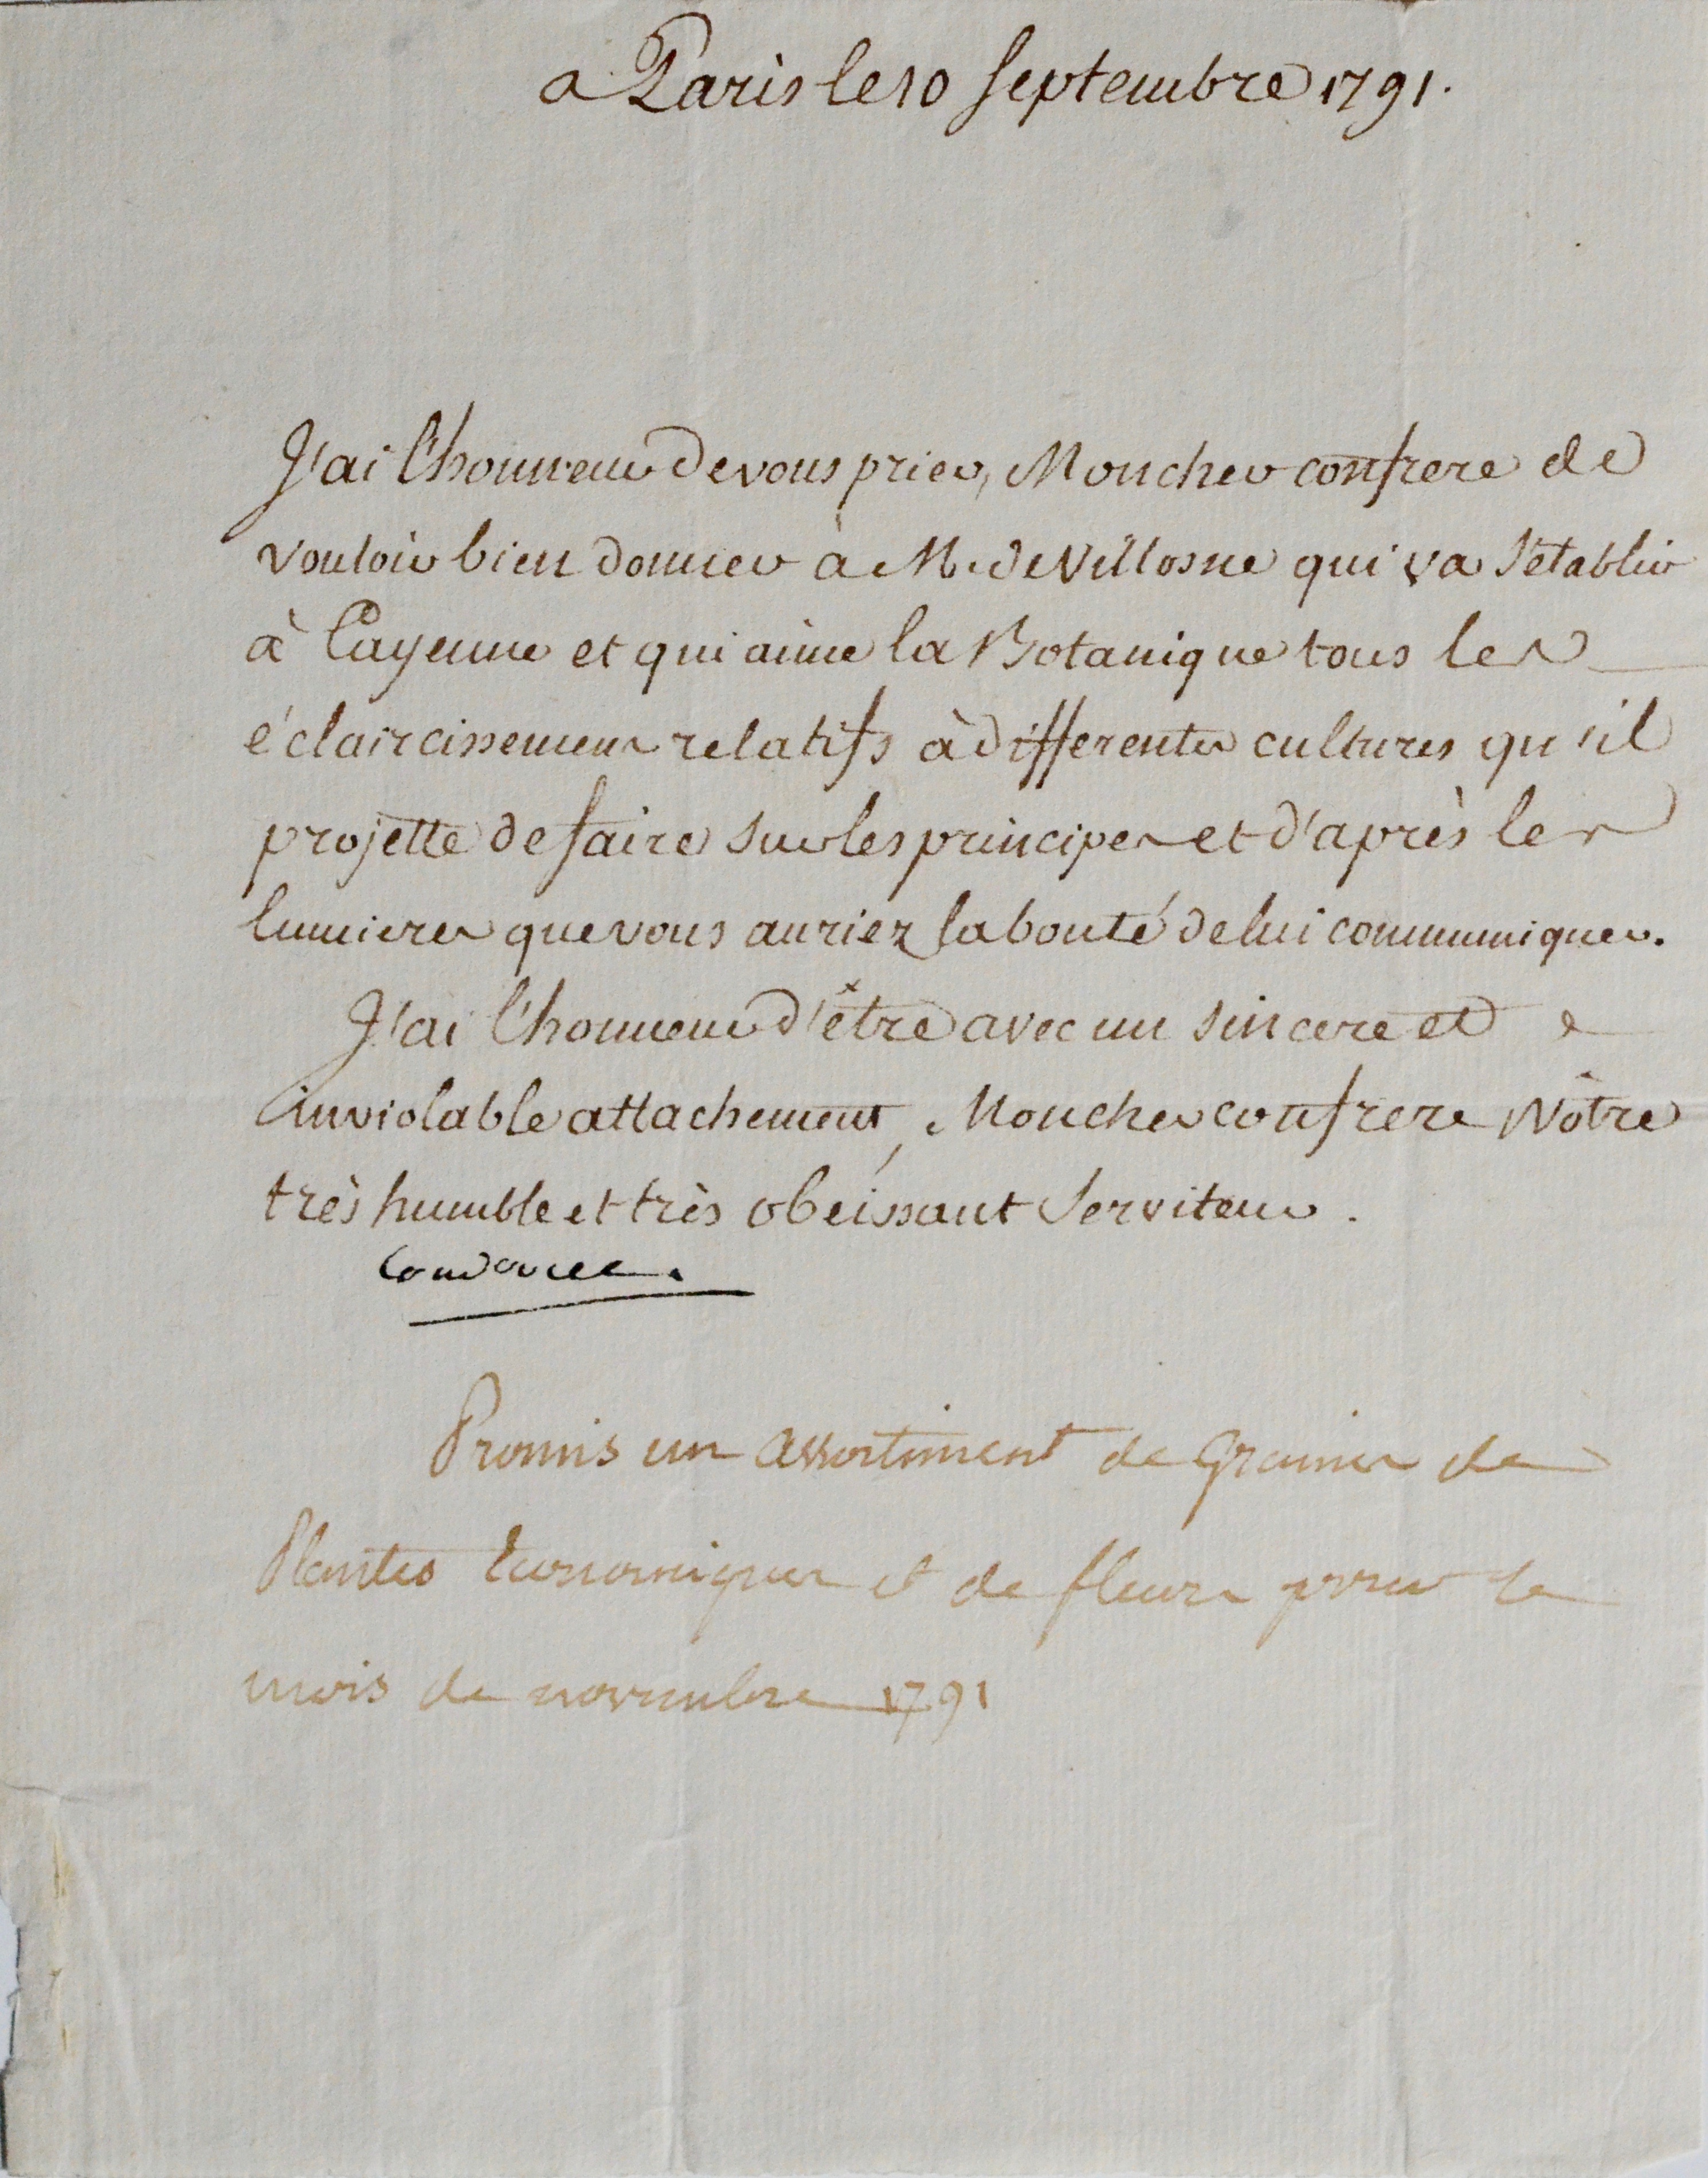 a Paris le 10 Septembre 1791.
J'ai l'honneur de vous prier, Mon cher confrere de
vouloir bien donner à M. de Villosne qui va s'etablir
à Cayenne et qui aime la Botanique tous les
éclaircissemens relatifs à differentes cultures qu'il
projette de faire sur les principes et d'après les
lumieres que vous auriez la bonté de lui communiquer.
J'ai l'honneur d'être avec un sincere et
inviolable attachement, Mon cher confrere Vôtre
très humble et très obéissant Serviteur.
Condorcet.
Promis un assortiment de Graines de
Plantes Economiques et de fleurs pour le
mois de novembre 1791